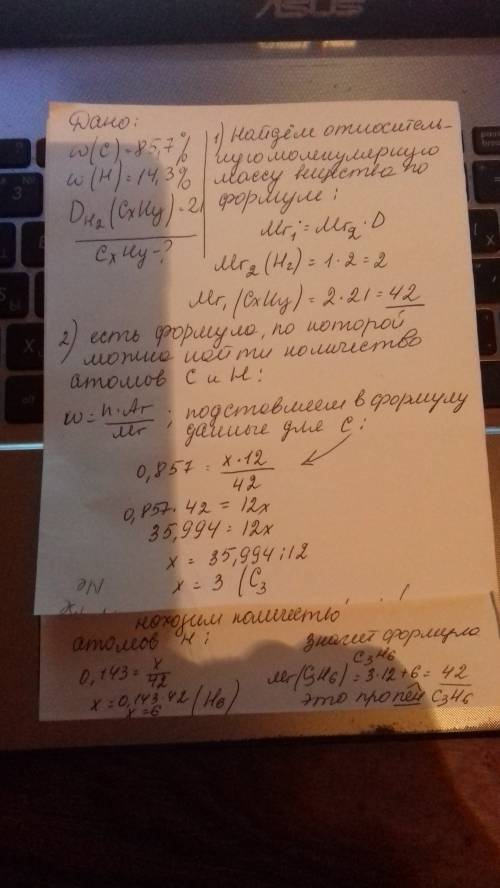 ASUS
Дано:
w(C)=85,7%
w(H)=14,3%
D H2 (CxHy)=21
CxHy-?
1) Найдём относитель-
ную молекулярную
массу вещества по
формуле:
Mr1=Mr2·D
Mr2(H2)=1·2=2
Mr1(CxHy)=2·21=42
2) есть формула, по которой
можно найти количество
атомов C и H:
w=n·Ar/Mr; подставляем в формулу
данные для C:
0,857=x·12/42
0,857·42=12x
35,994=12x
x=35,994:12
x=3 (C3
находим количество
атомов H:
0,143=x/42
x=0,143·42
x=6 (H6)
значит формула
C3H6
Mr(C3H6)=3·12+6=42
это пропен C3H6